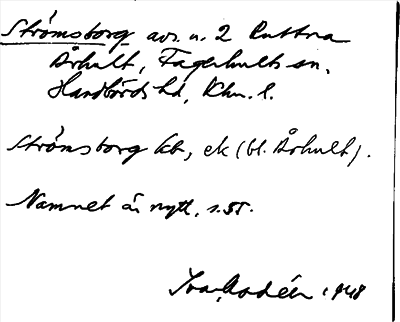 Strömsborg avs. u. 2 Ruttna
Århult, Fagerhults sn,
Handbörds hd, Klm. l.
Strömsborg kb, ek (bl. Århult).
Namnet är nytt, s. 55.
Ivar Modéer 1948